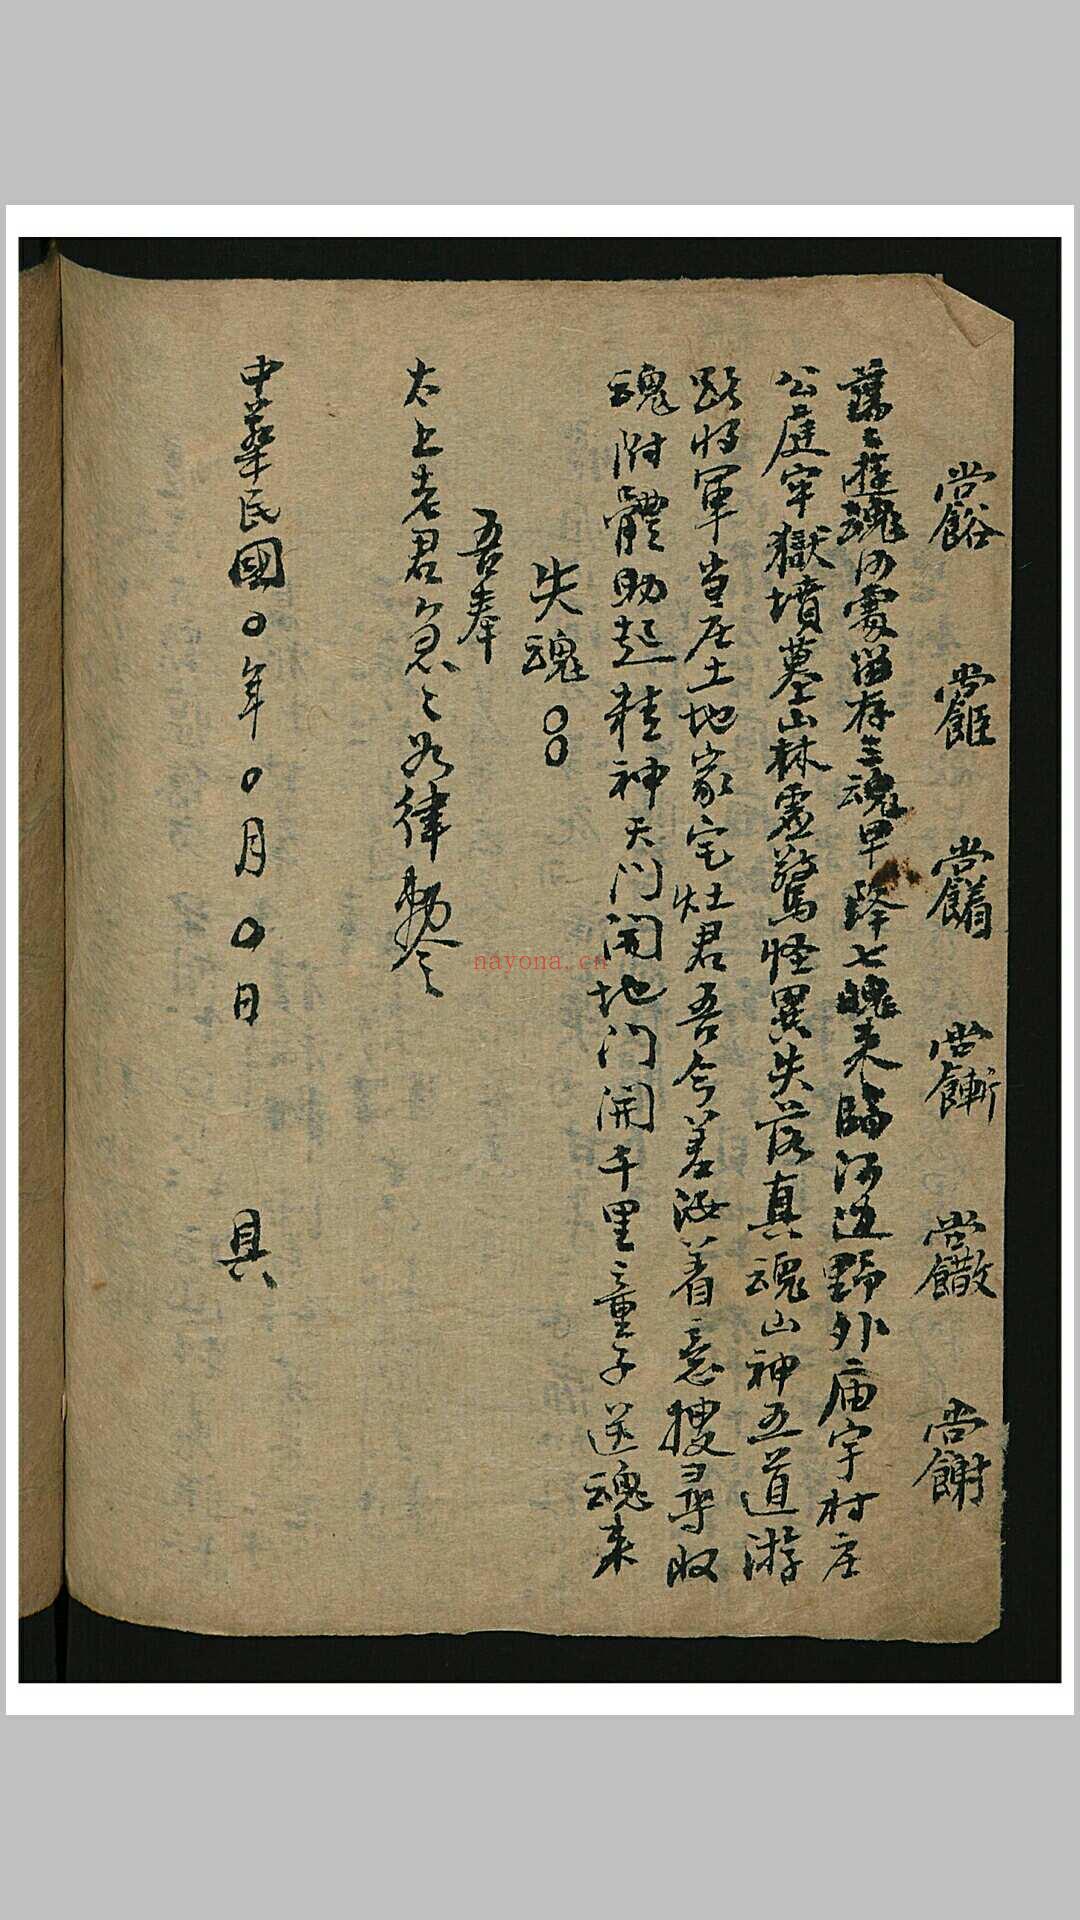 蕩〻遊魂何處留存三魂早降七魄来臨河边野外庙宇村庄
公庭牢獄墳墓山林虚驚怪異失落真魂山神五道游
路将軍当庄土地家宅灶君吾今差汝着意搜尋收
魂附體助起精神天门開地门開千里童子送魂来
失魂〇〇
吾奉
太上老君急〻如律勅令〻
中華民國〇年〇月〇日 具
nayona.cn